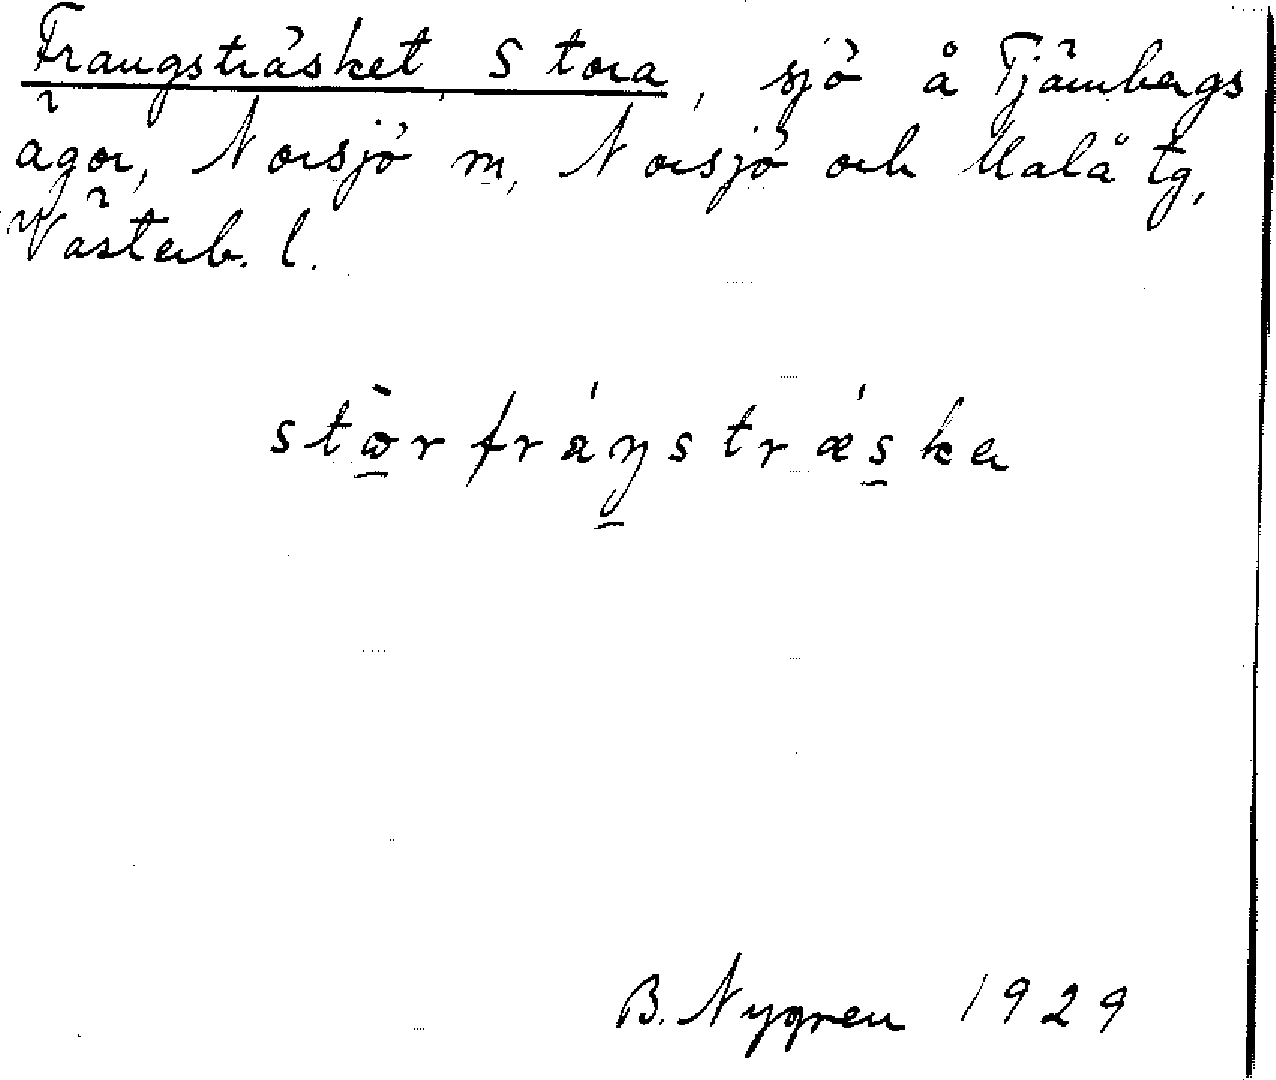 Frangsträsket, Stora, sjö å Tjärnbergs
ägor, Norsjö sn, Norsjö och Malå tg,
Västerb. l.
stor fráŋstrǽska
B. Nygren 1929